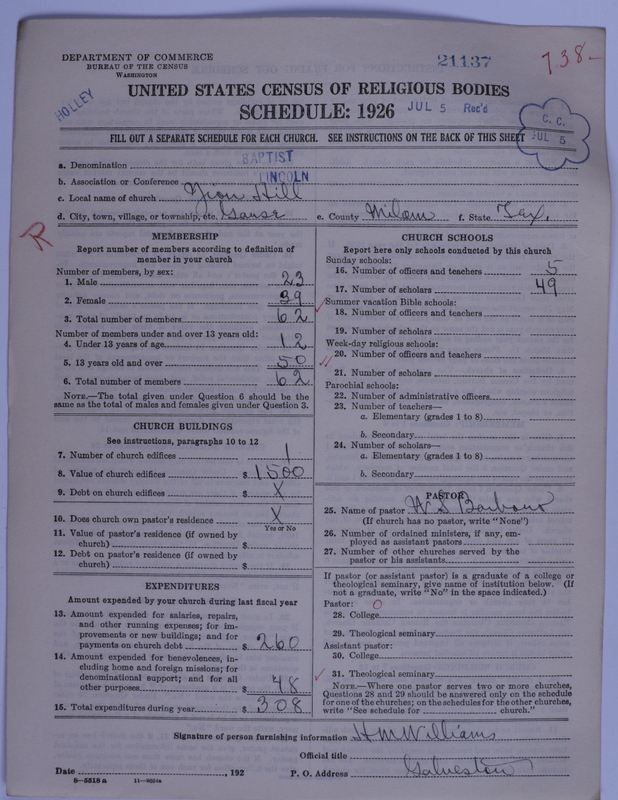 DEPARTMENT OF COMMERCE
BUREAU OF THE CENSUS
WASHINGTON
21137
738-
HOLLEY
UNITED STATES CENSUS OF RELIGIOUS BODIES
SCHEDULE: 1926
JUL 5 Rec'd
C. C.
JUL 5
FILL OUT A SEPARATE SCHEDULE FOR EACH CHURCH. SEE INSTRUCTIONS ON THE BACK OF THIS SHEET
a. Denomination BAPTIST
b. Association or Conference LINCOLN
c. Local name of church Zion Hill
d. City, town, village, or township, etc. Gause e. County Milam f. State Tex.
R
MEMBERSHIP
Report number of members according to definition of
member in your church
Number of members, by sex:
1. Male 23
2. Female 39
3. Total number of members 62
Number of members under and over 13 years old:
4. Under 13 years of age 12
5. 13 years old and over 50
6. Total number of members 62
NOTE.—The total given under Question 6 should be the
same as the total of males and females given under Question 3.
CHURCH BUILDINGS
See instructions, paragraphs 10 to 12
7. Number of church edifices 1
8. Value of church edifices $ 1500
9. Debt on church edifices $ X
10. Does church own pastor's residence X
Yes or No
11. Value of pastor's residence (if owned by
church) $
12. Debt on pastor's residence (if owned by
church) $
EXPENDITURES
Amount expended by your church during last fiscal year
13. Amount expended for salaries, repairs,
and other running expenses; for im-
provements or new buildings; and for
payments on church debt $ 260
14. Amount expended for benevolences, in-
cluding home and foreign missions; for
denominational support; and for all
other purposes $ 48
15. Total expenditures during year $ 308
CHURCH SCHOOLS
Report here only schools conducted by this church
Sunday schools:
16. Number of officers and teachers 5
17. Number of scholars 49
Summer vacation Bible schools:
18. Number of officers and teachers
19. Number of scholars
Week-day religious schools:
20. Number of officers and teachers
21. Number of scholars
Parochial schools:
22. Number of administrative officers
23. Number of teachers—
a. Elementary (grades 1 to 8)
b. Secondary
24. Number of scholars—
a. Elementary (grades 1 to 8)
b. Secondary
PASTOR
25. Name of pastor W. S. Barbour
(If church has no pastor, write "None")
26. Number of ordained ministers, if any, em-
ployed as assistant pastors
27. Number of other churches served by the
pastor or his assistants
If pastor (or assistant pastor) is a graduate of a college or
theological seminary, give name of institution below. (If
not a graduate, write "No" in the space indicated.)
Pastor: O
28. College
29. Theological seminary
Assistant pastor:
30. College
31. Theological seminary
NOTE.—Where one pastor serves two or more churches,
Questions 28 and 29 should be answered only on the schedule
for one of the churches; on the schedules for the other churches,
write "See schedule for church."
Signature of person furnishing information H M Williams
Official title
Date , 192 P. O. Address Galveston
8-5518a 11-9064a